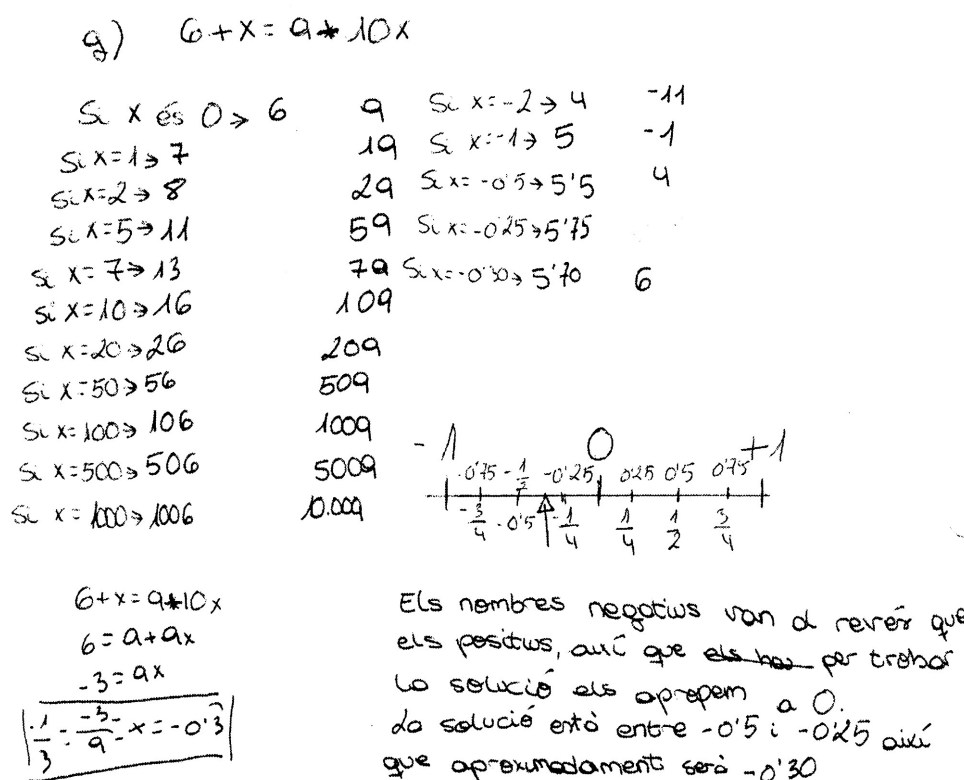 g) 6+x=9+10x
Si x és 0→ 6 9
Si x=1→ 7 19
Si x=2→ 8 29
Si x=5→ 11 59
Si x=7→ 13 79
Si x=10→ 16 109
Si x=20→ 26 209
Si x=50→ 56 509
Si x=100→ 106 1009
Si x=500→ 506 5009
Si x=1000→ 1006 10.009
Si x=-2→ 4 -11
Si x=-1→ 5 -1
Si x=-0'5→ 5'5 4
Si x=-0'25→ 5'75
Si x=-0'30→ 5'70 6
-1 0 +1
-0'75 -1/2 -0'25 0'25 0'5 0'75
-3/4 -0'5 -1/4 1/4 1/2 3/4
6+x=9+10x
6=9+9x
-3=9x
-1/3 = -3/9 = x = -0'3
Els nombres negatius van al revés que
els positius, així que els per trobar
la solució els apropem a 0.
La solució està entre -0'5 i -0'25 així
que aproximadament serà -0'30